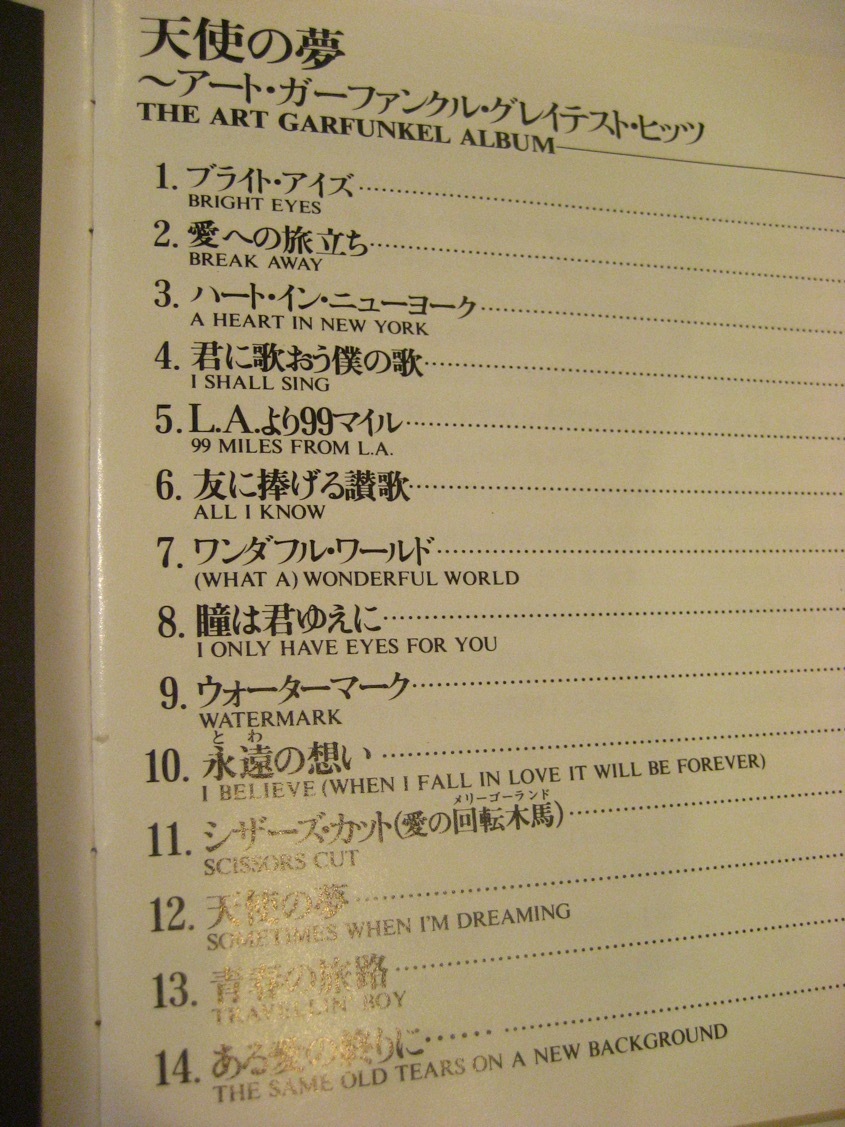 天使の夢
～アート・ガーファンクル・グレイテスト・ヒッツ
THE ART GARFUNKEL ALBUM
1. ブライト・アイズ
BRIGHT EYES
2. 愛への旅立ち
BREAK AWAY
3. ハート・イン・ニューヨーク
A HEART IN NEW YORK
4. 君に歌おう僕の歌
I SHALL SING
5. L.A.より99マイル
99 MILES FROM L.A.
6. 友に捧げる讃歌
ALL I KNOW
7. ワンダフル・ワールド
(WHAT A) WONDERFUL WORLD
8. 瞳は君ゆえに
I ONLY HAVE EYES FOR YOU
9. ウォーターマーク
WATERMARK
とわ
10. 永遠の想い
I BELIEVE (WHEN I FALL IN LOVE IT WILL BE FOREVER)
メリーゴーランド
11. シザーズ・カット(愛の回転木馬)
SCISSORS CUT
12. 天使の夢
SOMETIMES WHEN I'M DREAMING
13. 青春の旅路
TRAVELLIN' BOY
14. ある愛の終りに
THE SAME OLD TEARS ON A NEW BACKGROUND